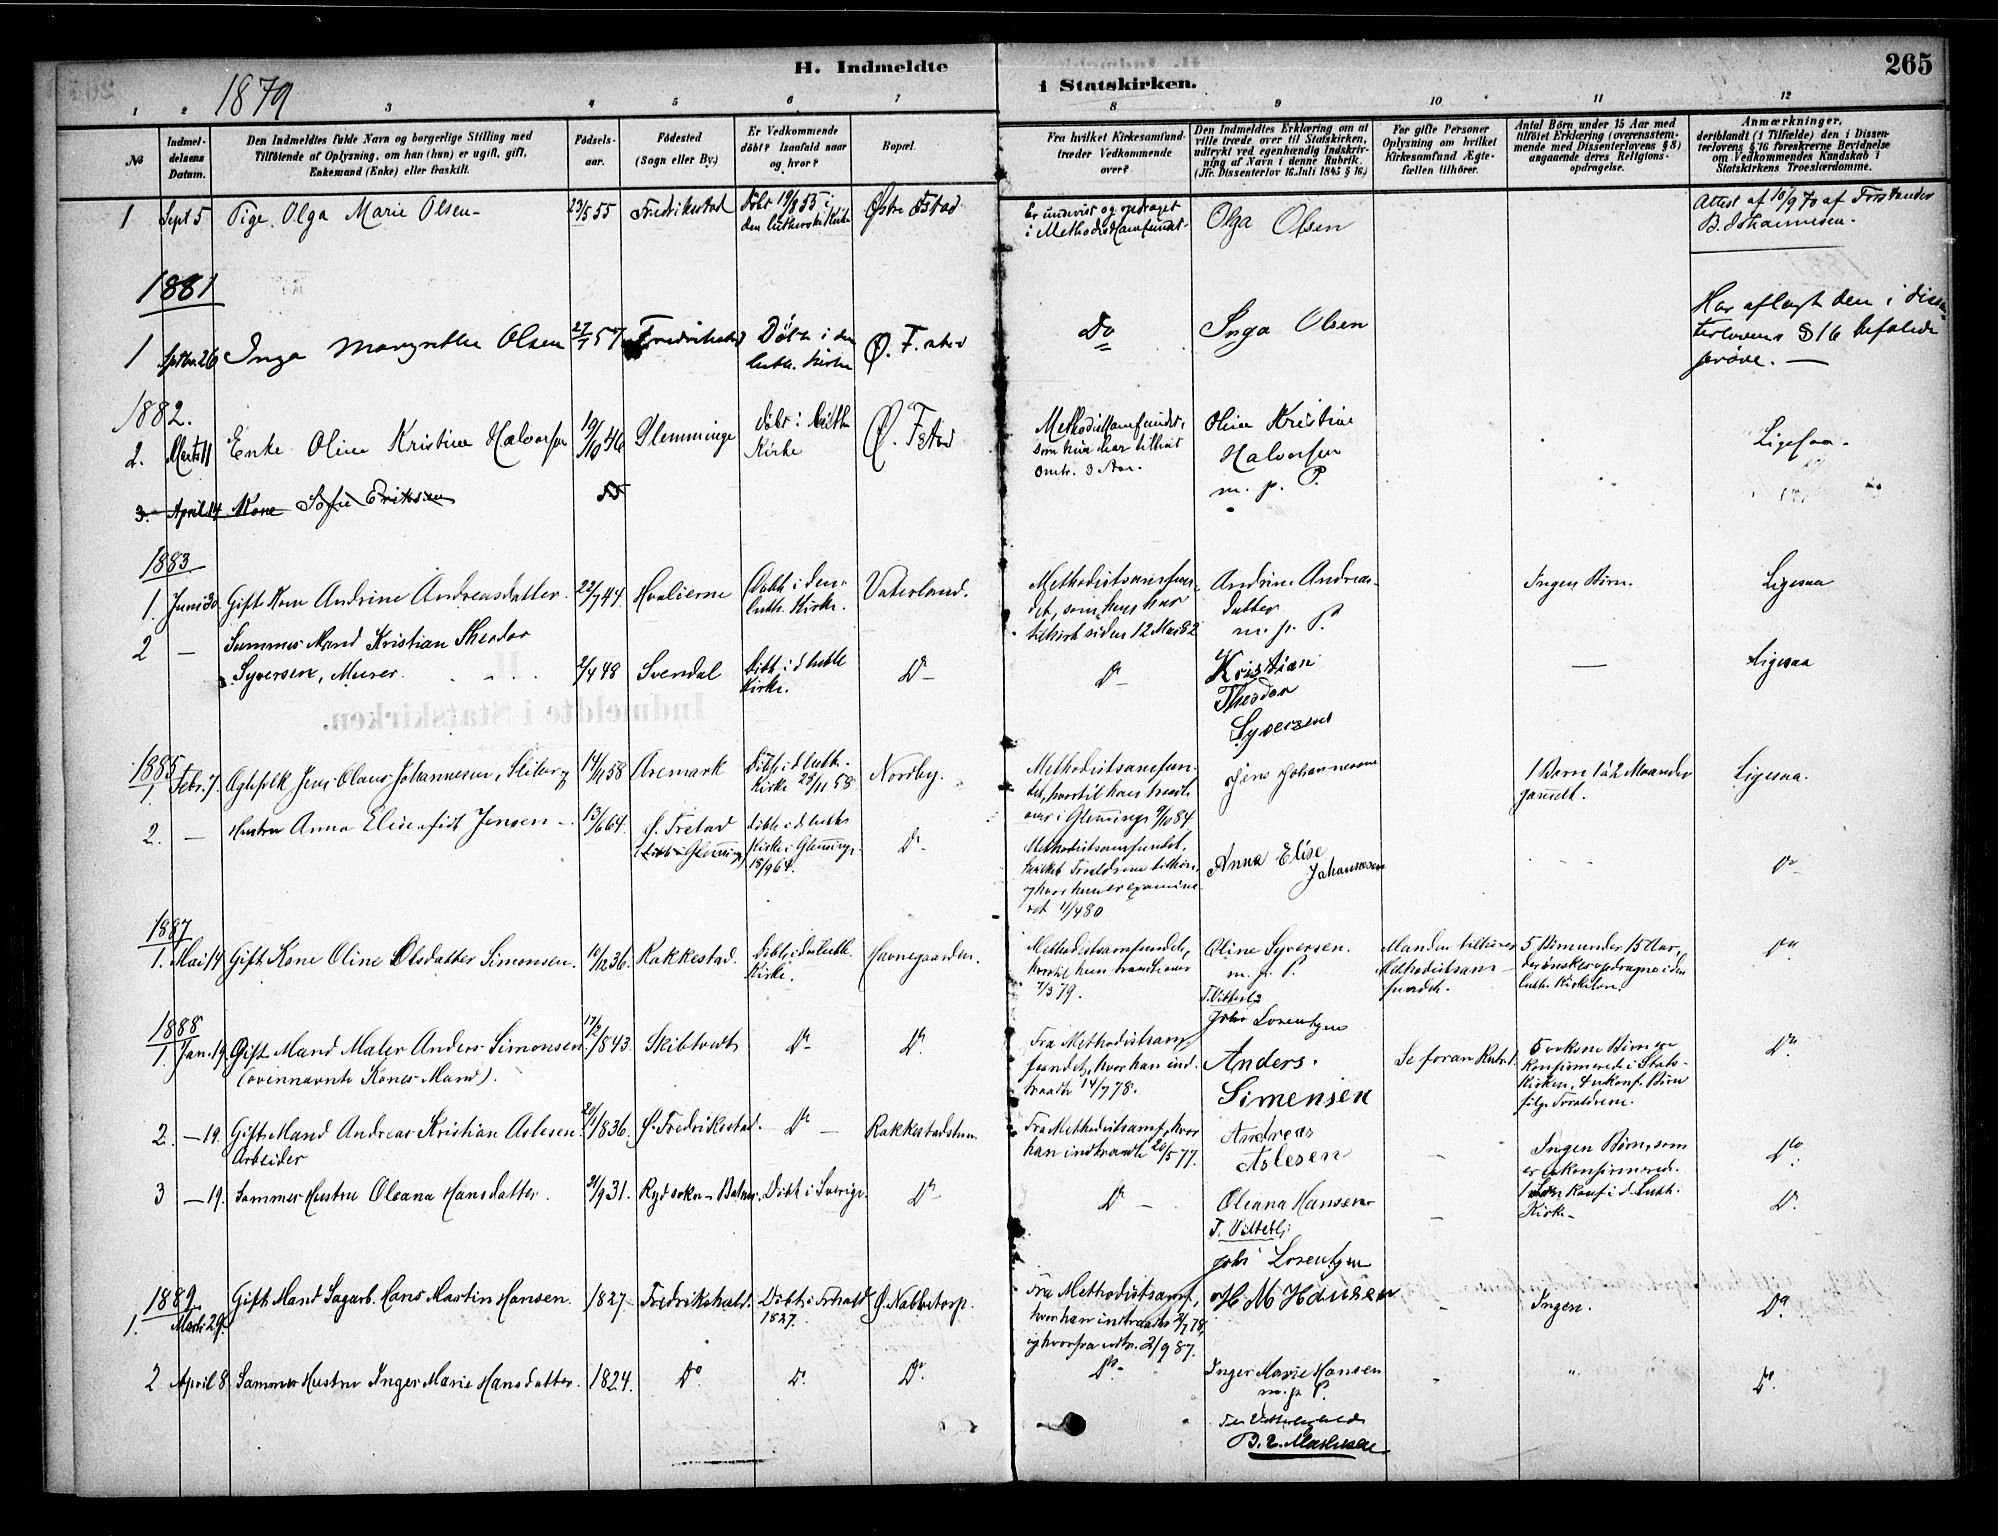 H. Indmeldte
i Statskirken.
265
1879
1 2 3 4 5 6 7 8 9 10 11 12
No
Indmeldelsens Datum.
Den Indmeldtes fulde Navn og borgerlige Stilling med
Tilföiende af Oplysning, om han (hun) er ugift, gift,
Enkemand (Enke) eller fraskilt.
Födsels-
aar.
Födested
(Sogn eller By.)
Er Vedkommende
döbt? Isaafald naar
og hvor?
Bopæl.
Fra hvilket Kirkesamfund
træder Vedkommende
over?
Den Indmeldtes Erklæring om at
ville træde over til Statskirken,
udtrykt ved egenhændig Indskriv-
ning af Navn i denne Rubrik.
(Jfr. Dissenterlov 16 Juli 1845 § 16.)
For gifte Personer
Oplysning om hvilket
Kirkesamfund Ægte-
fællen tilhörer.
Antal Börn under 15 Aar med
tilföiet Erklæring (overensstem-
mende med Dissenterlovens § 8)
angaaende deres Religions-
opdragelse.
Anmærkninger,
deriblandt (i Tilfælde) den i Dissen-
terlovens § 16 foreskrevne Bevidnelse
om Vedkommendes Kundskab i
Statskirkens Troeslærdomme.
1 Sept 5 Pige Olga Marie Olsen 23/5 55 Fredrikstad Döbt 19/8 55 i
den lutherske Kirke Østre Fstad
Er undervist og opdraget
i Methodistsamfundet. Olga Olsen
Attest af 10/9 70 af Forstander
B. Johannesen.
1881
1 Septbr. 26 Inga Margrethe Olsen 27/7 57 Fredrikstad Döbt i den
luth. Kirke Ø. F.stad Do Inga Olsen
Har aflagt den i Dissen-
terlovens § 16 befalede
pröve.
1882.
2. Marts 11 Enke Oline Kristine Halvorsen 19/10 46 Glemminge Döbt i luth.
Kirke Ø. Fstad
Methodistsamfundet,
som hun har tilhört
omtr. 3 Aar.
Oline Kristine
Halvorsen
m. p. P.
Ligesaa
3. April 14 Kone Sofie Eriksen 55
1883
1. Juni 30 Gift Kone Andrine Andreasdatter. 22/7 44 Hvalöerne Döbt i den
luth. Kirke. Vaterland.
Methodistsamfun-
det, som hun har
tilhört siden 12 Mai 82
Andrine Andreas-
datter
m. p. P.
Ingen Börn. Ligesaa
2 — Sammes Mand Kristian Theodor
Syversen, Murer 2/4 48 Svendal Döbt i d. luth
Kirke. Do Do
Kristian
Theodor
Syversen
— Ligesaa
1885
1. Febr. 7. Ægtefolk Jens Olaus Johannesen, 14/4 58 Aremark Döbt i d. luth.
Kirke 25/11 58 Nordby.
Methodistsamfun-
det, hvortil han traadte
over i Glemminge 9/10 84
Jens Johannesen
1 Barn 1 à 2 Maaneder
gammelt. Ligesaa.
2. — Hustru Anna Elise födt Jensen 13/6 64. Ø. Frstad
(döbt i Glemminge) Döbt i d. luth
Kirke i Glemminge
18/9 64. Do
Methodistsamfundet,
hvilket Forældrene tilhöre,
og hvor hun er examine-
ret 11/4 80
Anna Elise
Johannesen
Do
1887
1. Mai 14 Gift Kone Oline Olsdatter Simonsen. 10/12 36. Rakkestad. Döbt i den luth.
Kirke. Havnegaarden.
Methodistsamfundet,
hvortil hun traadte over
7/3 79.
Oline Syversen.
m. p. P.
T. Vitterl.
John Lorentzen
Manden tilhörer
Methodistsam-
fundet.
5 Börn under 15 Aar,
der önskes opdragne i den
luth. Kirkes Lære. Do
1888
1. Jan. 19. Gift Mand Maler Anders Simonsen 17/2 1843. Skibtvedt Do Do
(ovennævnte Kones Mand).
Fra Methodistsam-
fundet, hvor han ind-
traadte 14/7 78.
Anders
Simensen
Se foran Rubr. 1.
5 voksne Börn ere
konfirmerede i Stats-
kirken, 4 ukonf. Börn
fölge Forældrene. Do
2. — 19. Gift Mand Andreas Kristian Aslesen. 1836. Ø. Fredriksstad. Do — Rakkestadstun.
Arbeider
Fra Methodistsamf., hvor
han indtraadte 20/5 77.
Andreas
Aslesen
Ingen Börn, som
er ukonfirmered. Do
3 — 19. Sammes Hustru Oleana Hansdatter. 21/9 31. Döbt i Sverige. Do Do —
Oleana Hansen
T. Vitterl.
John Lorentzen
1 Barn konf. i d. Luth.
Kirke Do
1889
1. Marts 29. Gift Mand Sagarb. Hans Martin Hansen. 1827 Fredrikshald. Döbt i Frhald
1827. Ø. Nabbetorp.
Fra Methodistsamf.,
hvor han indtraadte 2/7 78,
og hvorfra udtr. 2/9 87.
H M Hansen
Ingen. Do
2 April 8 Sammes Hustru Inger Marie Hansdatter. 1824. Do Do Do Do
Inger Marie Hansen
m. p. P.
Til Vitterlighed
" Do